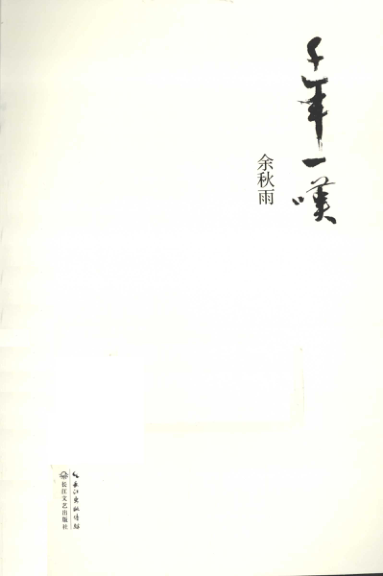 千年一嘆
余秋雨
长江出版传媒
长江文艺出版社